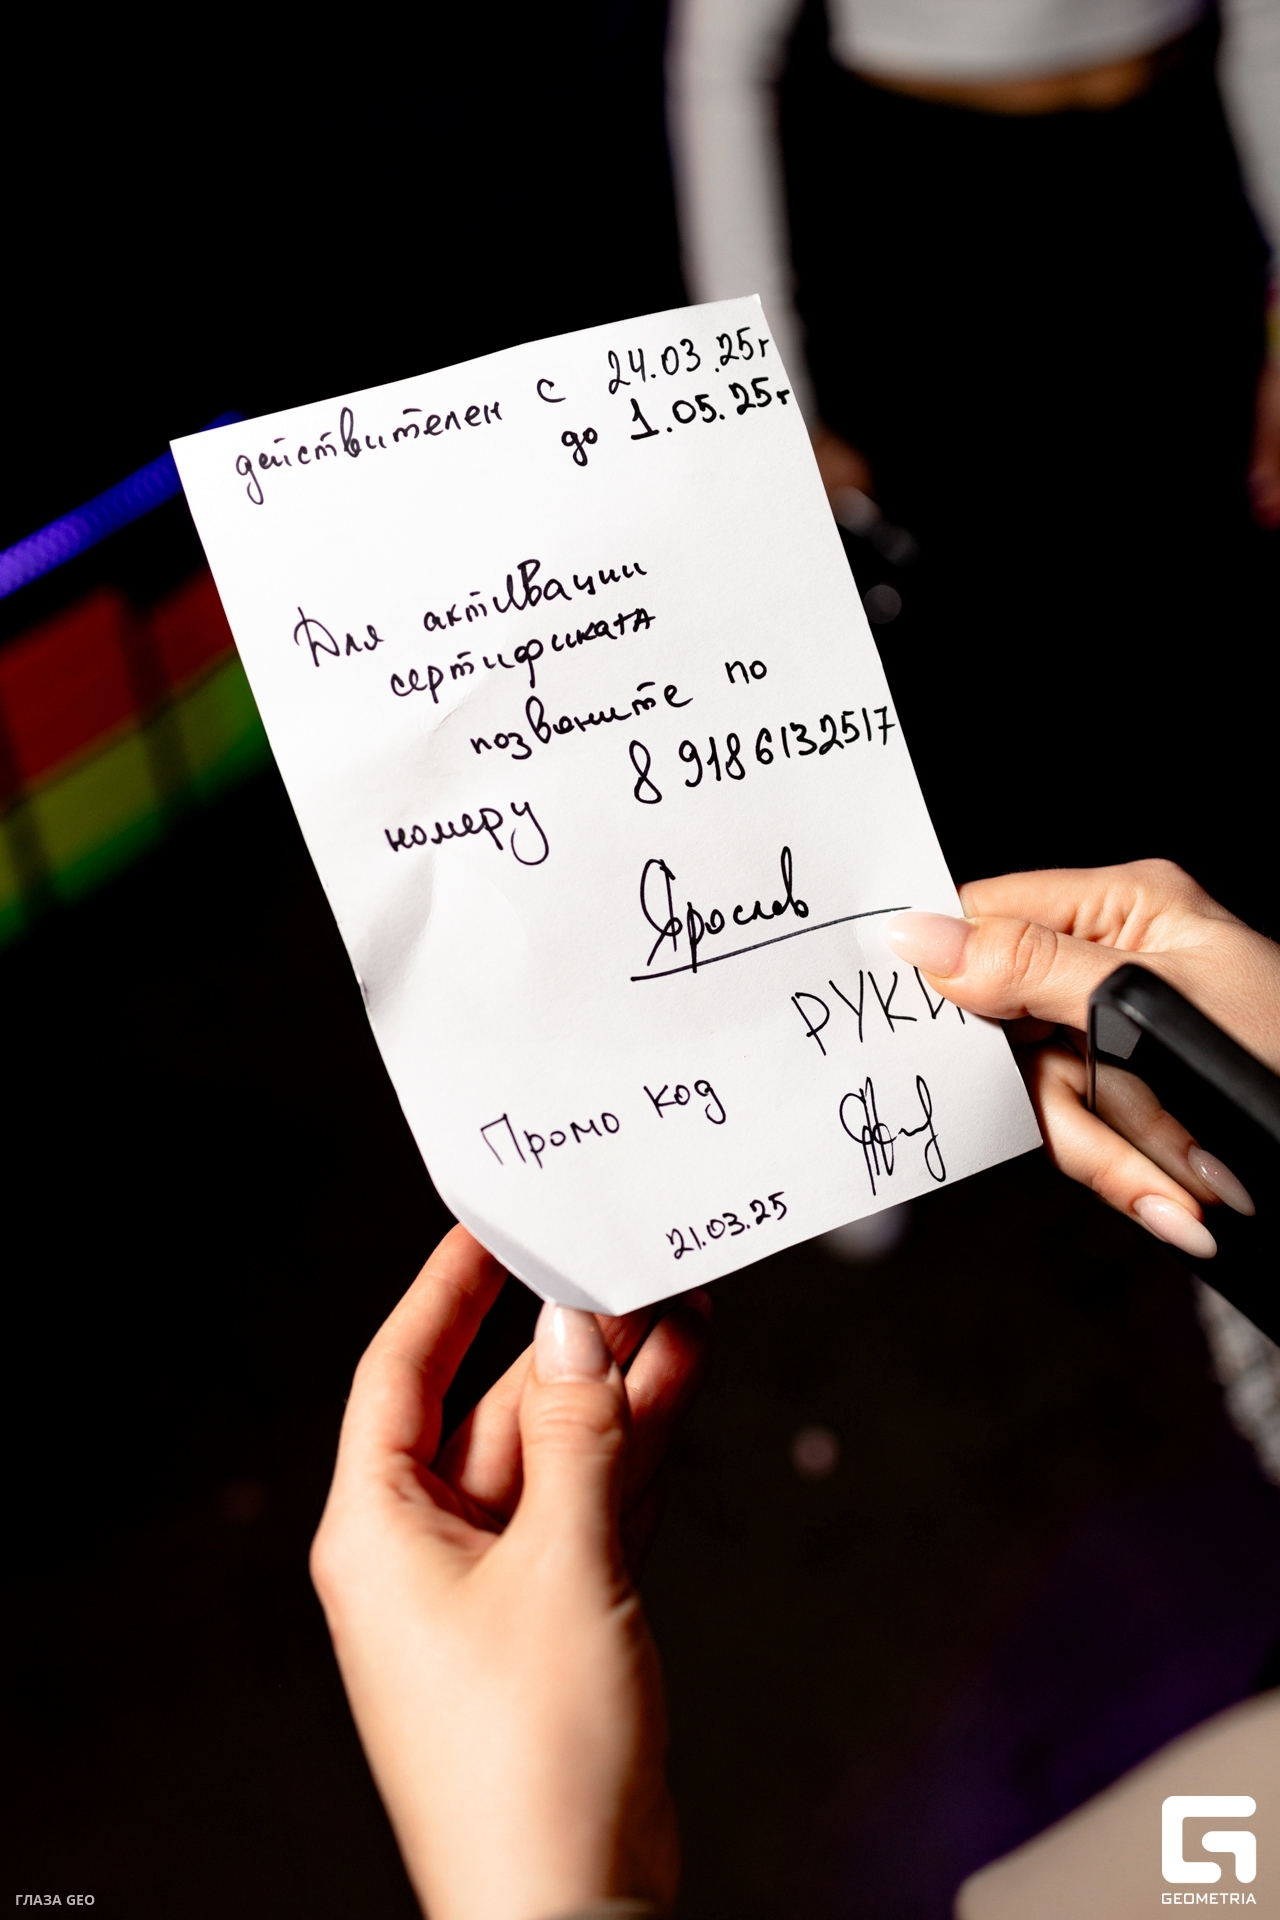 действителен с 24.03.25г
до 1.05.25г
Для активации
сертификата
позвоните по
номеру 8 9186132517
Ярослав
РУКИ
Промо код
21.03.25
ГЛАЗА GEO
GEOMETRIA